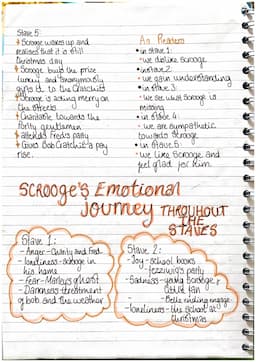 Stave 5
Scrooge wakes up and
realises that it is still
Christmas day
Scrooge buys the prize
turkey and anonymously
gives it to the Cratchits
Scrooge is acting merry on
the streets
Charitable towards the
portly gentlemen
attends Fred's party
Gives Bob Cratchit a pay
rise.
As Readers
in stave 1:
- we dislike scrooge
in stave 2:
- we gain understanding
in stave 3:
- we see what scrooge is
missing
in stave 4:
- we are sympathetic
towards scrooge
in stave 5:
- we like Scrooge, and
feel glad for him
SCROOGE'S Emotional
Journey THROUHOUT
THE
STAVES
Stave 1:
- Anger - Charity and Fred
- loneliness - scrooge in
his home
- Fear - Marley's ghost
- Darkness - treatment
of bob and the weather
Stave 2:
- Joy - school books
- fezziwig's party
- Sadness - young Scrooge
- Belle ending engage
- loneliness - the school at
christmas